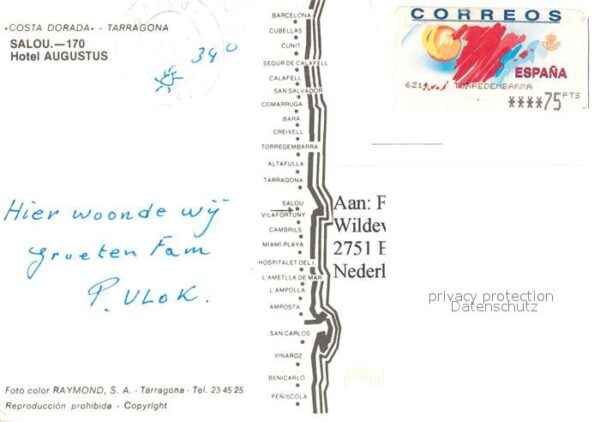 «COSTA DORADA» - TARRAGONA
SALOU.—170
Hotel AUGUSTUS
34°
Hier woonde wij
groeten Fam
P. VLOK.
Foto color RAYMOND, S. A. - Tarragona - Tel. 23 45 25
Reproducción prohibida - Copyright
BARCELONA
CUBELLAS
CUNIT
SEGUR DE CALAFELL
CALAFELL
SAN SALVADOR
COMARRUGA
BARA
CREIXELL
TORREDEMBARRA
ALTAFULLA
TARRAGONA
SALOU
VILAFORTUNY
CAMBRILS
MIAMI-PLAYA
HOSPITALET DEL I
L'AMETLLA DE MAR
L'AMPOLLA
AMPOSTA
SAN CARLOS
VINAROZ
BENICARLO
PEÑISCOLA
CORREOS
ESPAÑA
TORREDEMBARRA
****75 PTS
Aan: F
Wildev
2751 E
Nederl
privacy protection
Datenschutz